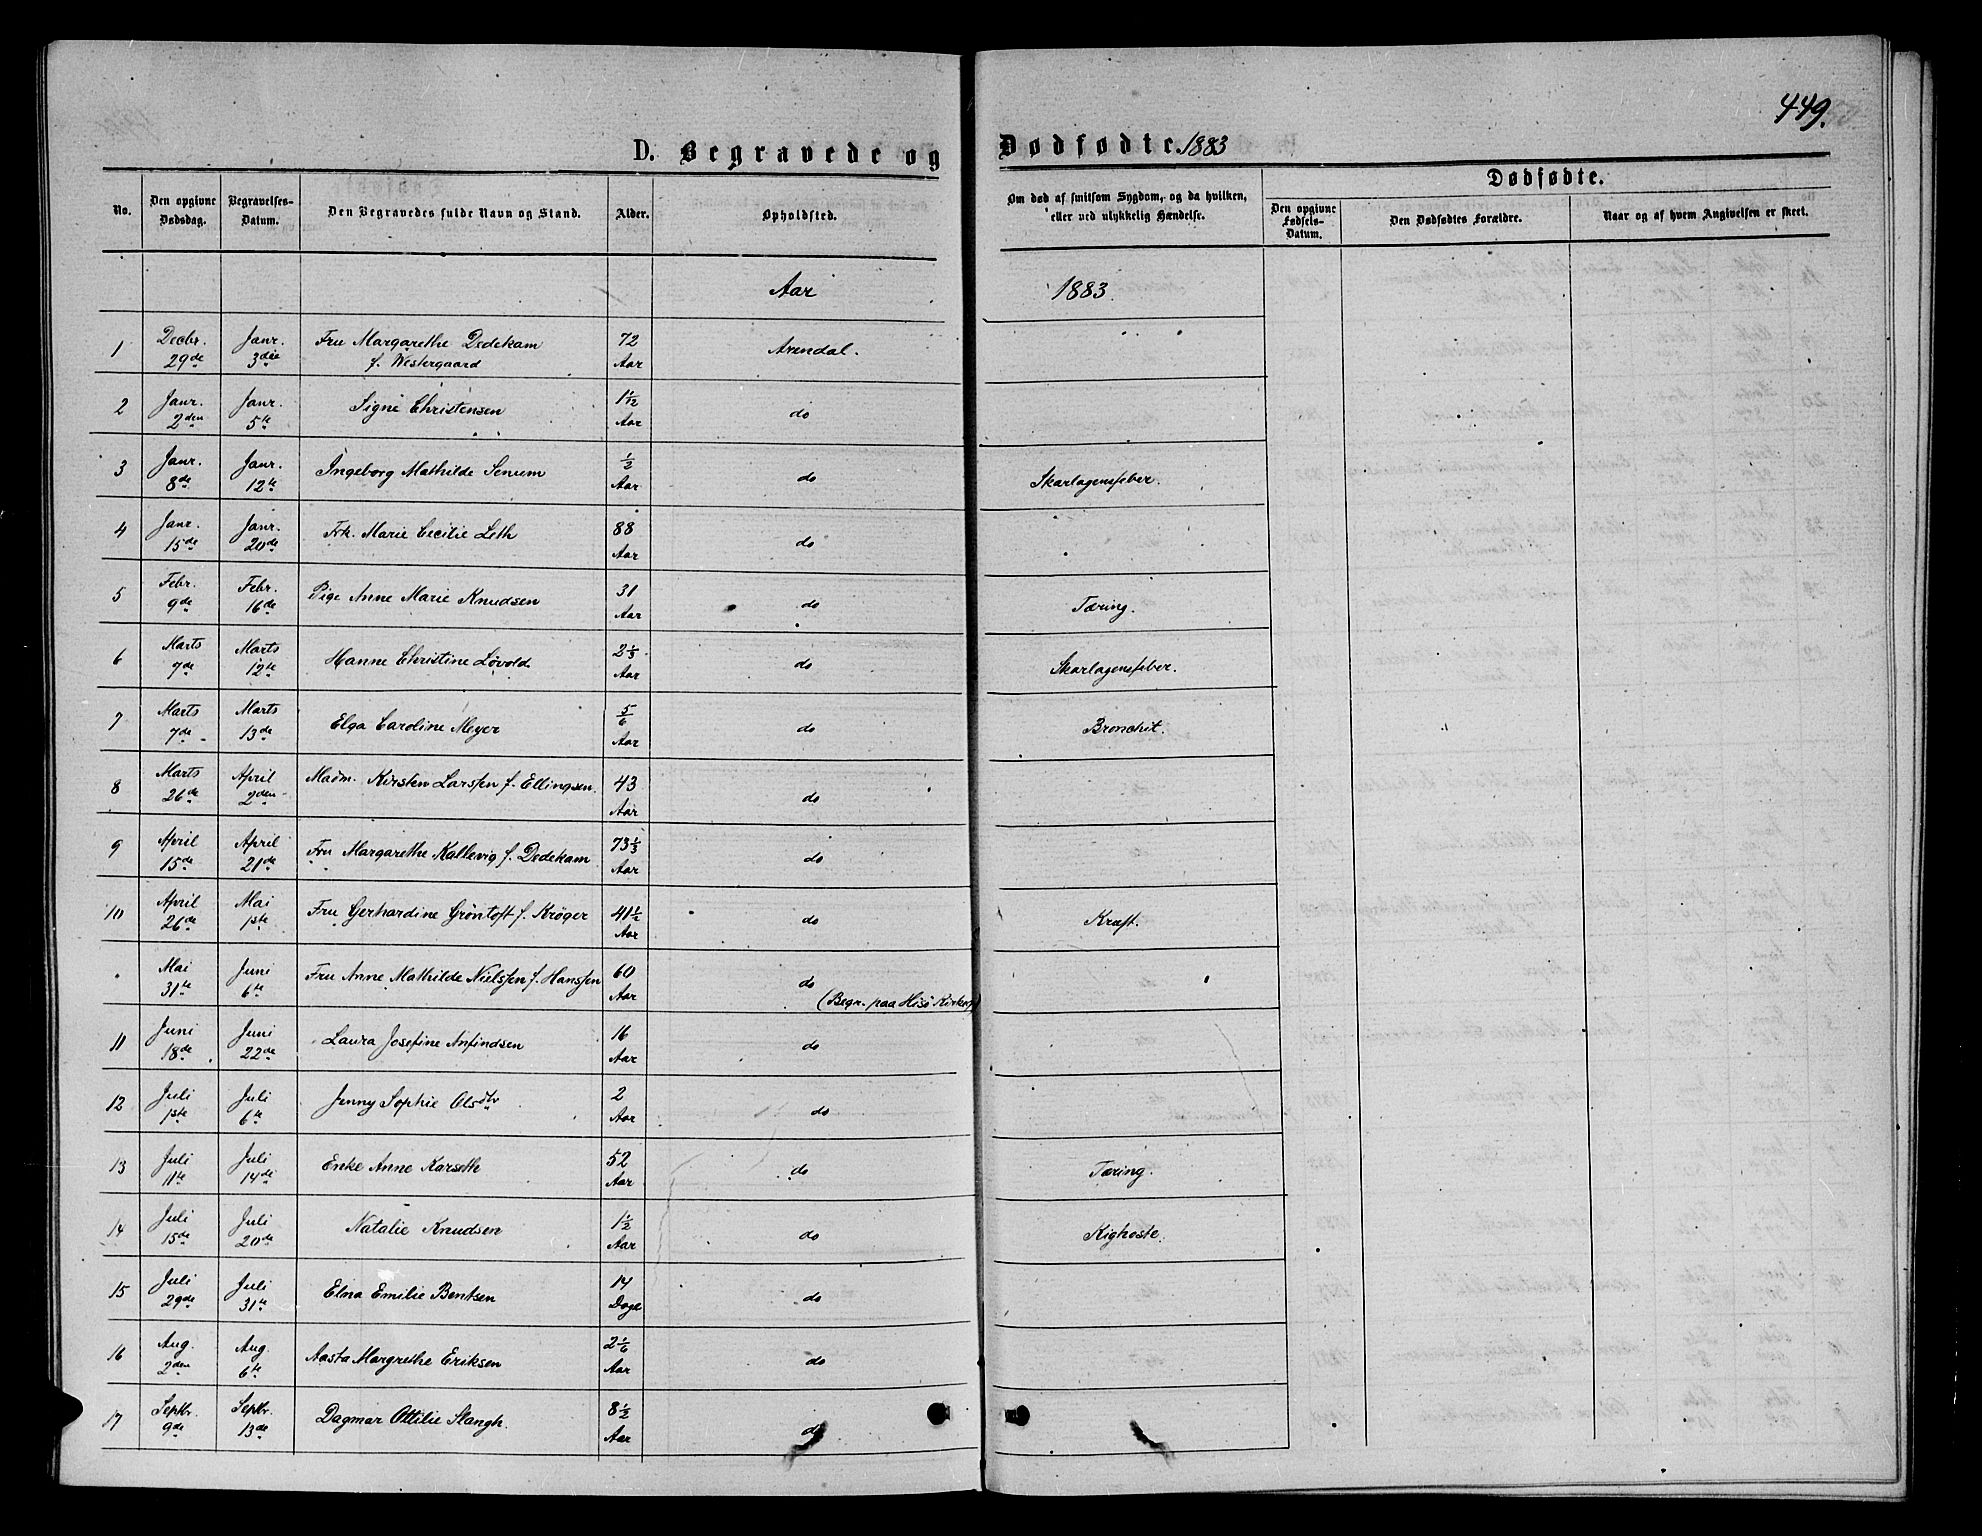 449.
D. Begravede og Dødfødte. 1883
No. Den opgivne Dødsdag. Begravelses-Datum. Den Begravedes fulde Navn og Stand. Alder. Opholdsted. Om død af smitsom Sygdom, og da hvilken, eller ved ulykkelig Hændelse. Dødfødte.
Den opgivne Fødsels-Datum. Den Dødfødtes Forældre. Naar og af hvem Angivelsen er skeet.
Aar 1883.
1 Decbr. 29de Janr. 3die Fru Margarethe Dedekam f. Westergaard 72 Aar Arendal.
2 Janr. 2den Janr. 5te Signe Christensen 1 1/12 Aar do
3 Janr. 8de Janr. 12te Ingeborg Mathilde Senum 1/2 Aar do Skarlagensfeber.
4 Janr. 15de Janr. 20de Frk. Marie Cecilie Leth 88 Aar do
5 Febr. 9de Febr. 16de Pige Anne Marie Knudsen 31 Aar do Tæring.
6 Marts 7de Marts 12te Hanne Christine Løvold 2 1/3 Aar do Skarlagensfeber.
7 Marts 7de Marts 13de Elga Caroline Meyer 5/6 Aar do Bronchit.
8 Marts 26de April 2den Madm. Kirsten Larssen f. Ellingsen. 43 Aar do
9 April 15de April 21de Fru Margarethe Kallevig f. Dedekam 73 1/3 Aar do
10 April 26de Mai 1ste Fru Gerhardine Grøntoft f. Krøger 41 1/2 Aar do Kræft.
Mai 31te Juni 6te Fru Anne Mathilde Nielssen f. Hanssen 60 Aar do (Begr. paa Hisø Kirkeg)
11 Juni 18de Juni 22de Laura Josefine Anfindsen 16 Aar do
12 Juli 1ste Juli 6te Jenny Sophie Olsdtr 2 Aar do
13 Juli 11te Juli 14de Enke Anne Karseth 52 Aar do Tæring.
14 Juli 15de Juli 20de Natalie Knudsen 1 1/2 Aar do Kighoste.
15 Juli 29de Juli 31te Elna Emilie Bentsen 14 Dage do
16 Aug. 2den Aug. 6te Aasta Margrethe Eriksen 2 1/6 Aar do
17 Septbr. 9de Septbr. 13de Dagmar Ottilie Slangh. 8 1/2 Aar do